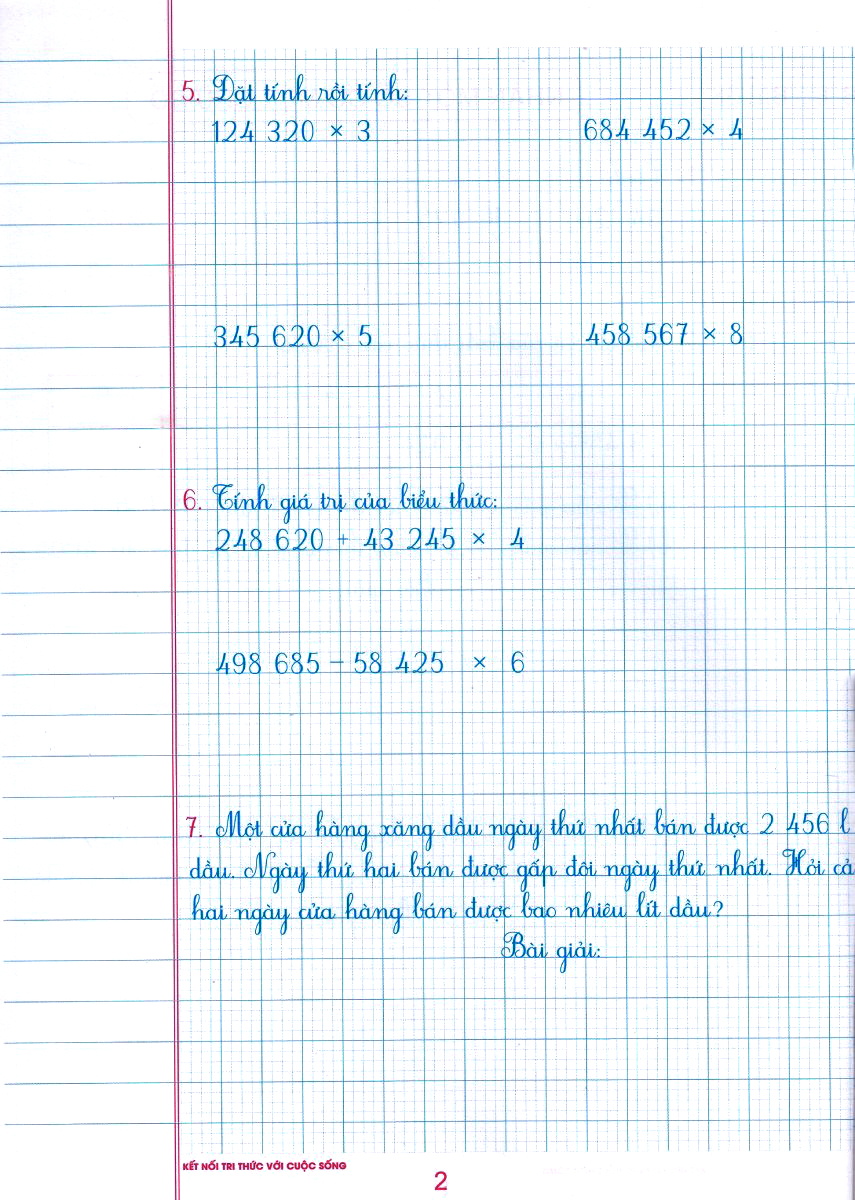 5. Đặt tính rồi tính:
124 320 × 3 684 452 × 4
345 620 × 5 458 567 × 8
6. Tính giá trị của biểu thức:
248 620 + 43 245 × 4
498 685 – 58 425 × 6
7. Một cửa hàng xăng dầu ngày thứ nhất bán được 2 456 l
dầu. Ngày thứ hai bán được gấp đôi ngày thứ nhất. Hỏi cả
hai ngày cửa hàng bán được bao nhiêu lít dầu?
Bài giải:
KẾT NỐI TRI THỨC VỚI CUỘC SỐNG
2